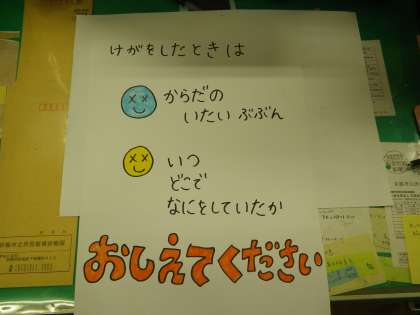 けがをしたときは
からだの
いたい ぶぶん
いつ
どこで
なにをしていたか
おしえてください